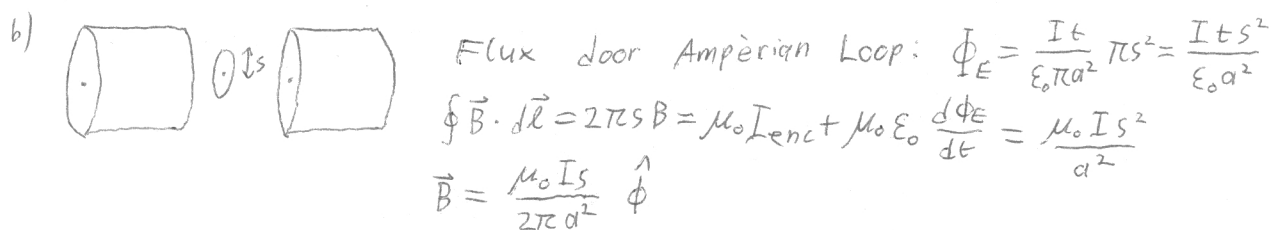 b)
s
Flux door Ampèrian Loop: Φ_E = It/(ε₀πa²) πs² = Its²/(ε₀a²)
∮B⃗·dl⃗ = 2πsB = μ₀I_enc + μ₀ε₀ dΦ_E/dt = μ₀Is²/a²
B⃗ = μ₀Is/(2πa²) φ̂